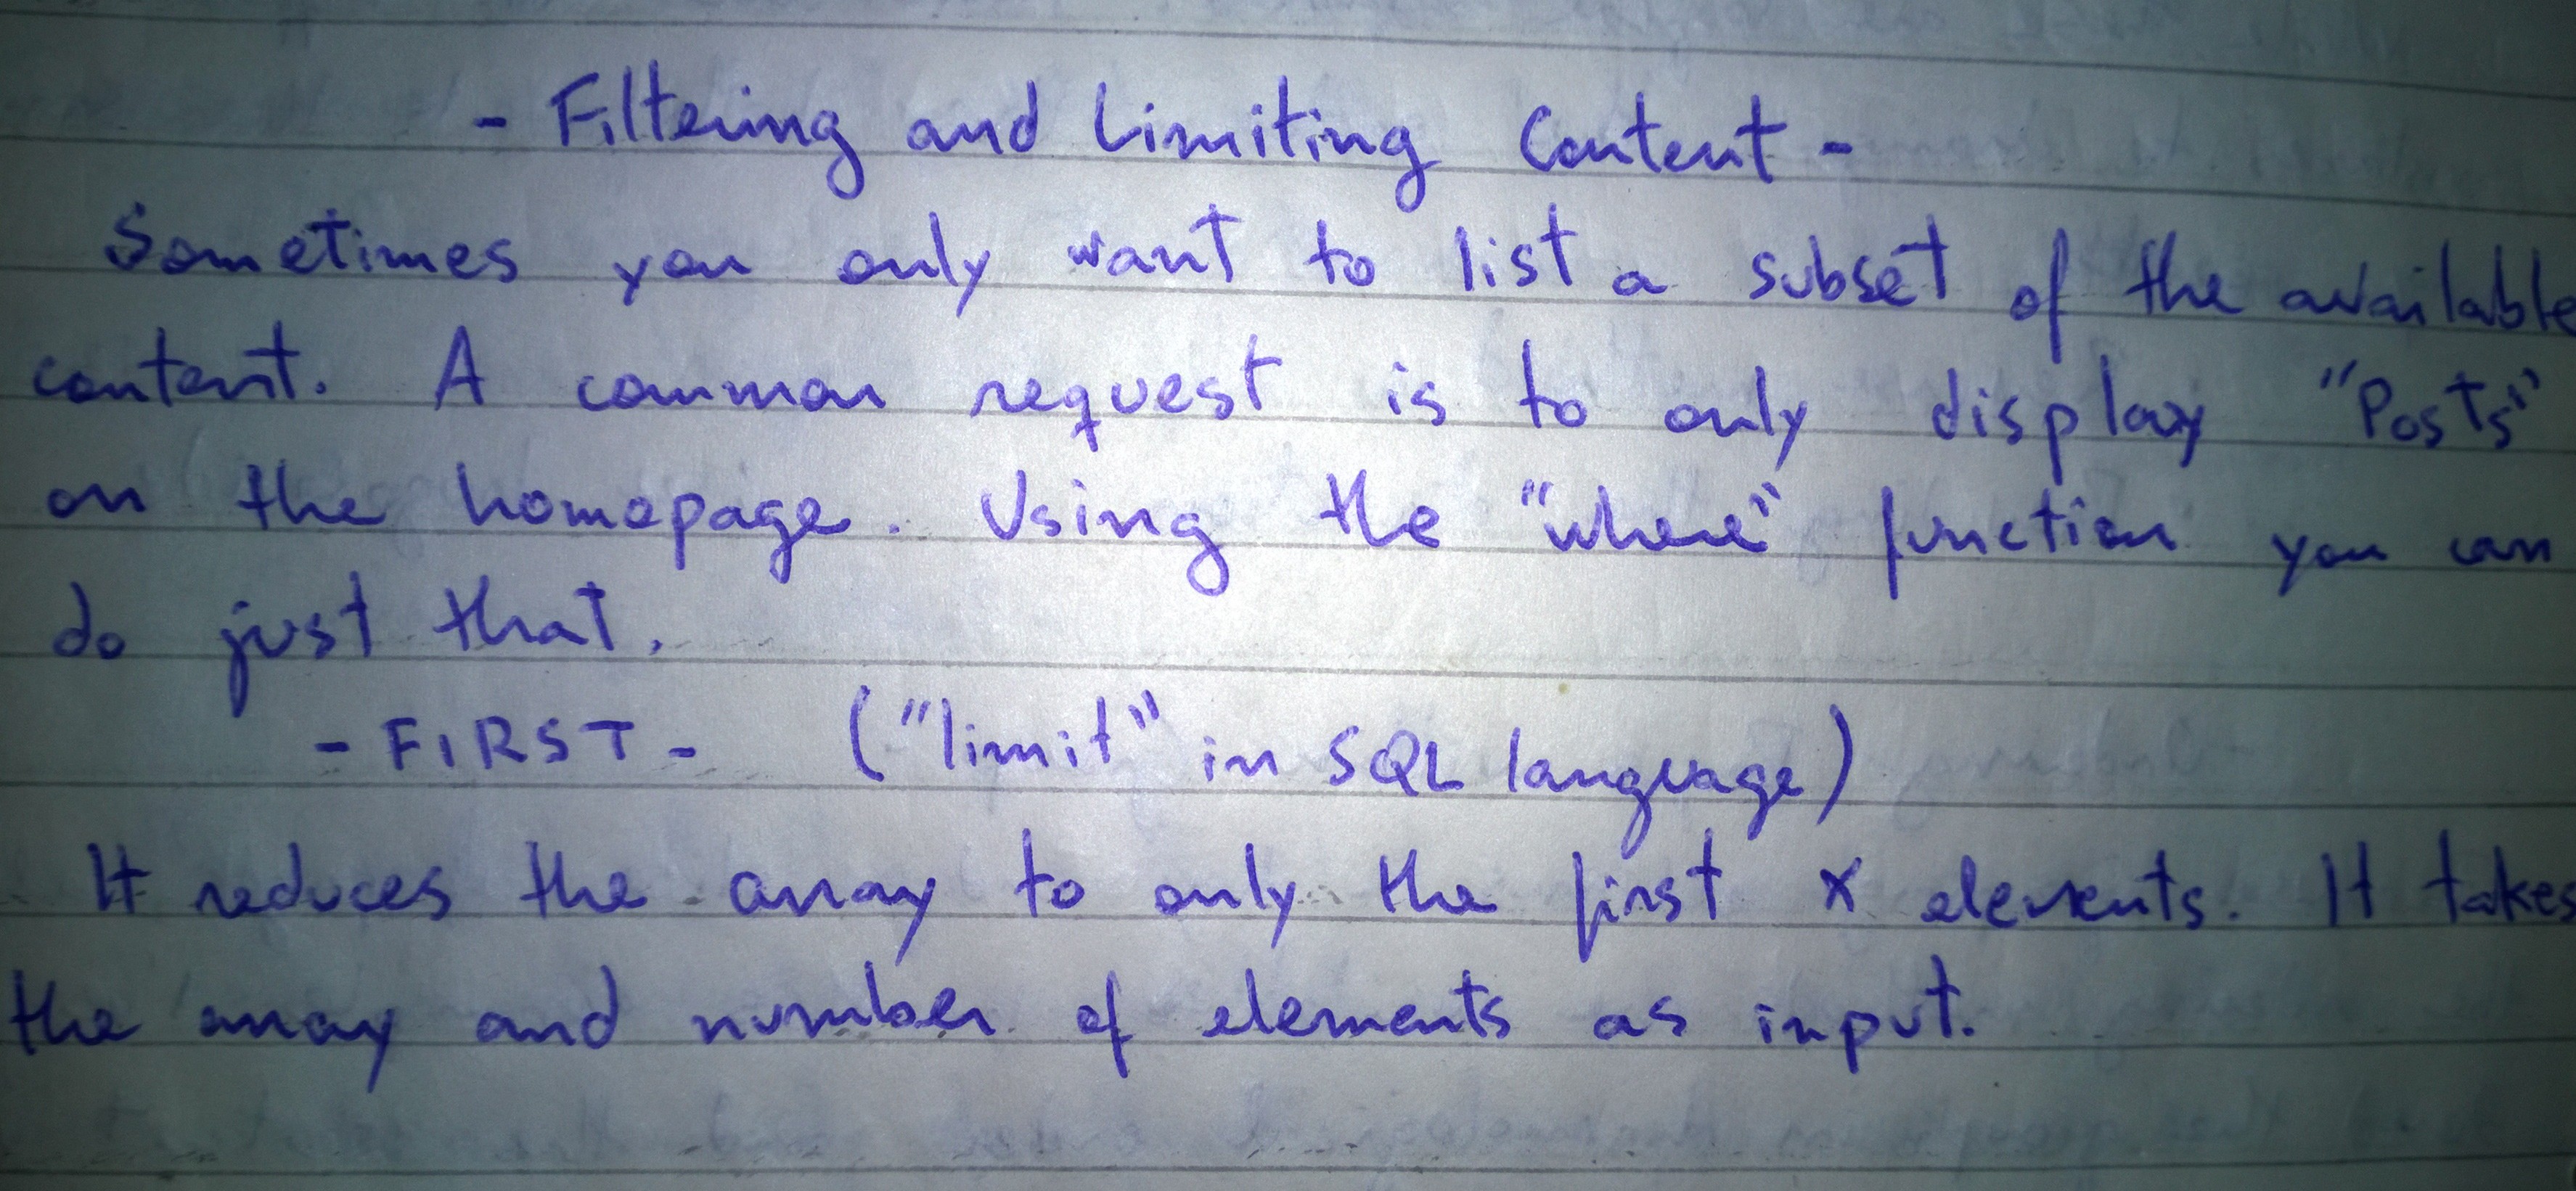 - Filtering and Limiting Content -
Sometimes you only want to list a subset of the available
content. A common request is to only display "Posts"
on the homepage. Using the "where" function you can
do just that.
- FIRST - ("limit" in SQL language)
It reduces the array to only the first x elements. It takes
the array and number of elements as input.